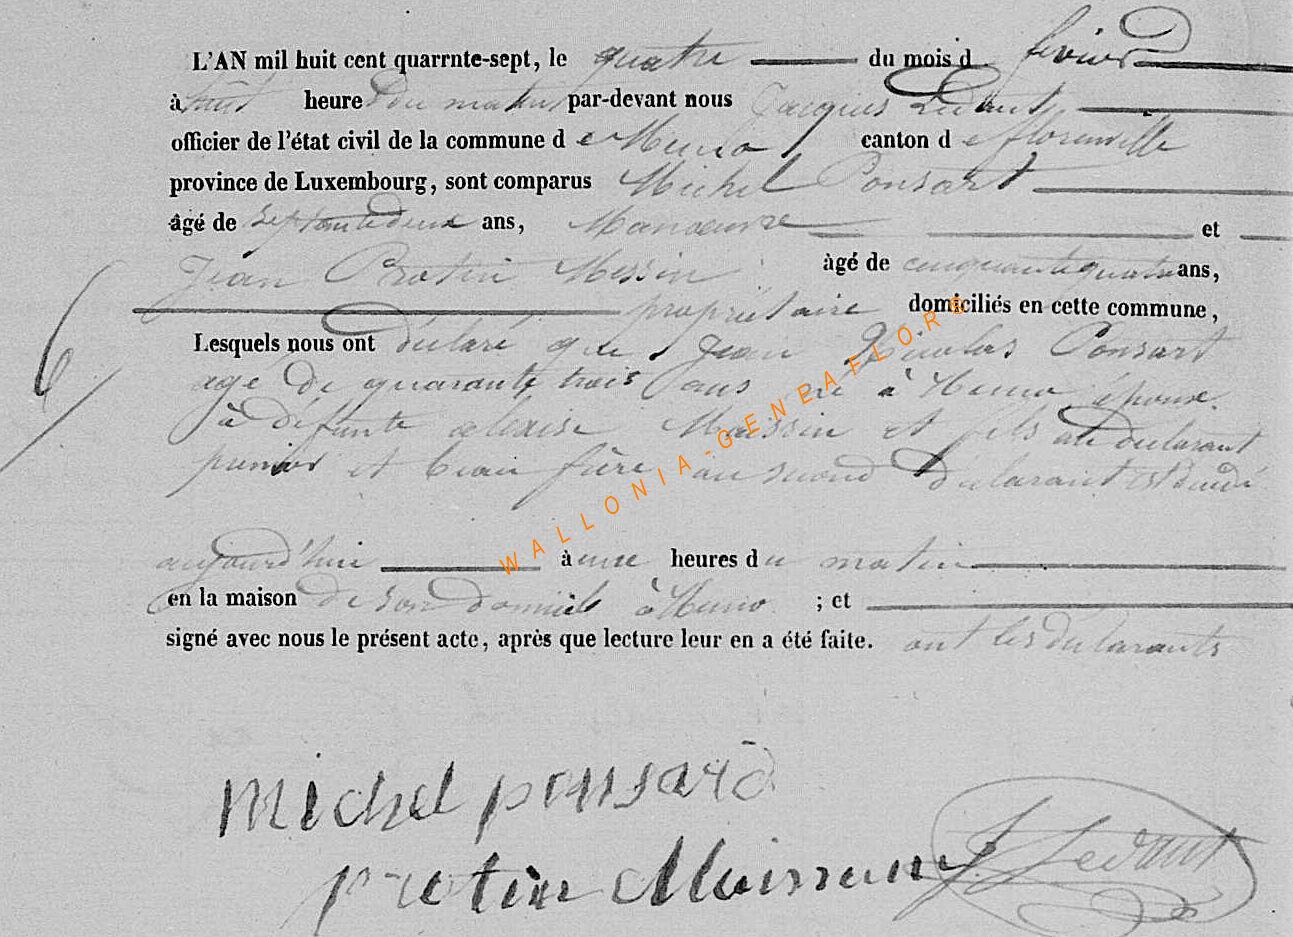 L'AN mil huit cent quarrnte-sept, le quatre du mois d février
à huit heure du matin par-devant nous Jacques Ledant
officier de l'état civil de la commune d e Muno canton d e florenville
province de Luxembourg, sont comparus Michel Ponsart
âgé de septantedeux ans, Manoeuvre et
Jean Protin Messin àgé de cinquantequatre ans,
propriétaire domiciliés en cette commune,
Lesquels nous ont déclaré que Jean Nicolas Ponsart
agé de quarante trois ans né à Muno époux
à défunte Maissin et fils au déclarant
premier et beau frère au second déclarant est décédé
aujourd'hui à une heures d u matin
en la maison de son domicile à Muno ; et
signé avec nous le présent acte, après que lecture leur en a été faite. ont les déclarants
Michel ponsard
protin Maissin
J Ledant
WALLONIA-GENEAFLORE
6